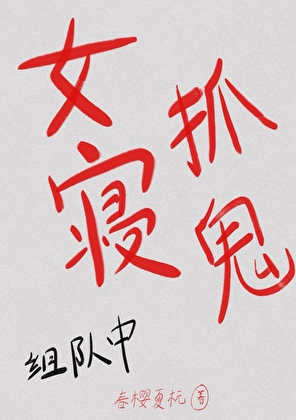 女寝
抓鬼
组队中
春樱夏杬 著